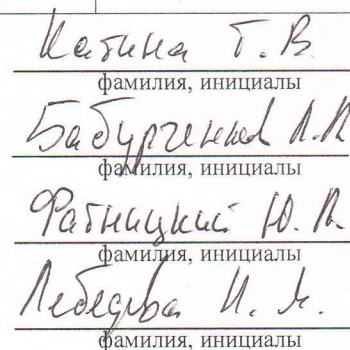 Катина Т. В.
фамилия, инициалы
Бабурченков Л.П
фамилия, инициалы
Фатницкий Ю. В.
фамилия, инициалы
Лебедева И. М.
фамилия, инициалы